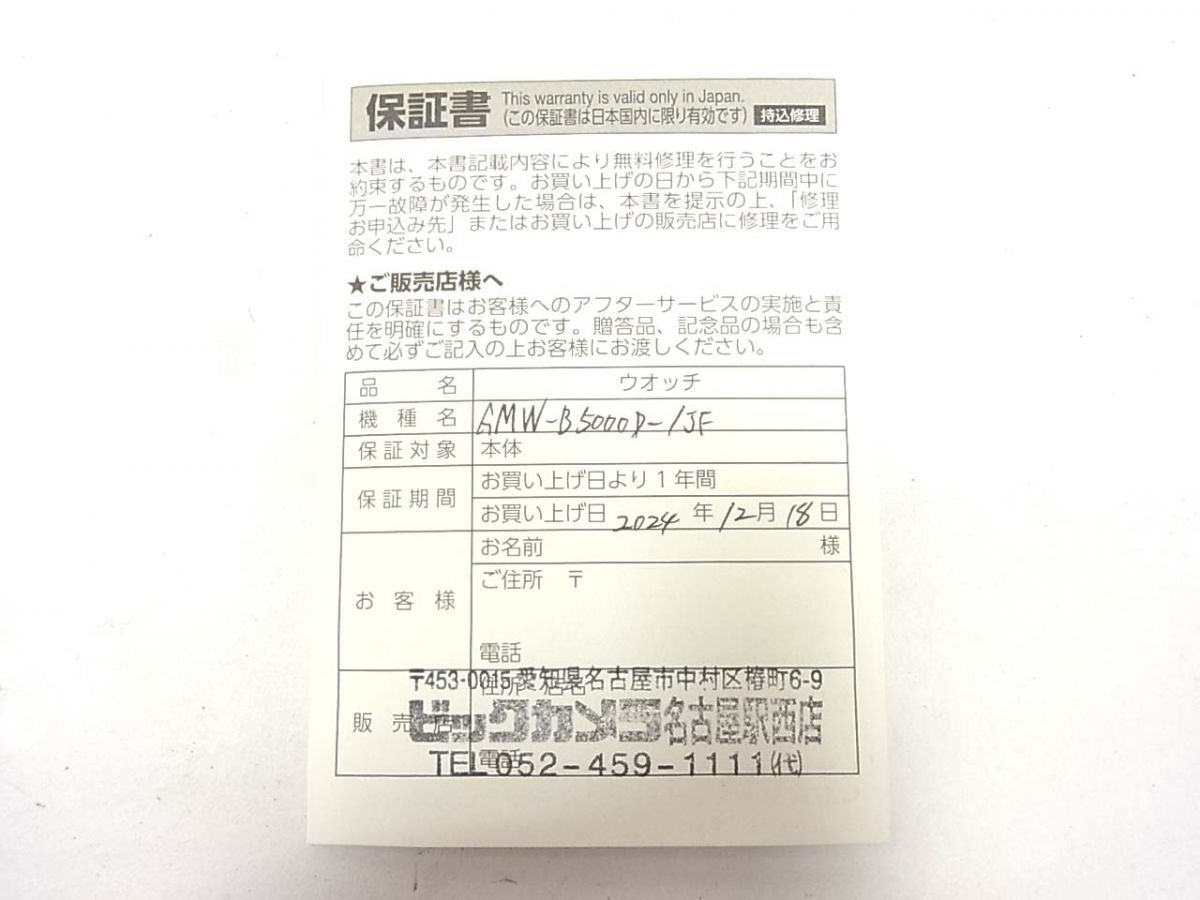 保証書 This warranty is valid only in Japan.
(この保証書は日本国内に限り有効です) 持込修理
本書は、本書記載内容により無料修理を行うことをお
約束するものです。お買い上げの日から下記期間中に
万一故障が発生した場合は、本書を提示の上、「修理
お申込み先」またはお買い上げの販売店に修理をご用
命ください。
★ご販売店様へ
この保証書はお客様へのアフターサービスの実施と責
任を明確にするものです。贈答品、記念品の場合も含
めて必ずご記入の上お客様にお渡しください。
品名 ウオッチ
機種名 GMW-B5000D-1JF
保証対象 本体
保証期間 お買い上げ日より1年間
お買い上げ日 2024年12月18日
お客様 お名前 様
ご住所 〒
電話
〒453-0015 愛知県名古屋市中村区椿町6-9
住所・店名
販売店 ビックカメラ名古屋駅西店
電話
TEL 052-459-1111(代)